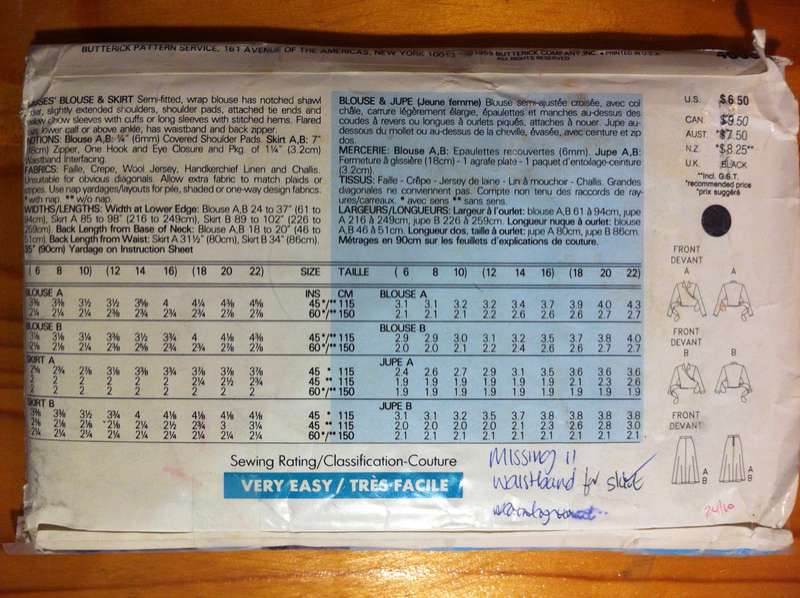 BUTTERICK PATTERN SERVICE, 161 AVENUE OF THE AMERICAS, NEW YORK 10013
BUTTERICK COMPANY, INC. • PRINTED IN U.S.A.
ALL RIGHTS RESERVED
BLOUSE & SKIRT Semi-fitted, wrap blouse has notched shawl
slightly extended shoulders, shoulder pads, attached tie ends and
sleeves with cuffs or long sleeves with stitched hems. Flared
lower calf or above ankle, has waistband and back zipper.
NOTIONS: Blouse A,B: ¼" (6mm) Covered Shoulder Pads. Skirt A,B: 7"
(18cm) Zipper, One Hook and Eye Closure and Pkg. of 1¼" (3.2cm)
Waistband Interfacing.
FABRICS: Faille, Crepe, Wool Jersey, Handkerchief Linen and Challis.
Unsuitable for obvious diagonals. Allow extra fabric to match plaids or
stripes. Use nap yardages/layouts for pile, shaded or one-way design fabrics.
*with nap. **w/o nap.
WIDTHS/LENGTHS: Width at Lower Edge: Blouse A,B 24 to 37" (61 to
94cm), Skirt A 85 to 98" (216 to 249cm), Skirt B 89 to 102" (226 to
259cm). Back Length from Base of Neck: Blouse A,B 18 to 20" (46 to
51cm). Back Length from Waist: Skirt A 31½" (80cm), Skirt B 34" (86cm).
35" (90cm) Yardage on Instruction Sheet
BLOUSE & JUPE (Jeune femme) Blouse semi-ajustée croisée, avec col
châle, carrure légèrement élargie, épaulettes et manches au-dessus des
coudes à revers ou longues à ourlets piqués, attaches à nouer. Jupe au-
dessous du mollet ou au-dessus de la cheville, évasée, avec ceinture et zip
dos.
MERCERIE: Blouse A,B: Epaulettes recouvertes (6mm). Jupe A,B:
Fermeture à glissière (18cm) - 1 agrafe plate - 1 paquet d'entoilage-ceinture
(3.2cm).
TISSUS: Faille - Crêpe - Jersey de laine - Lin à mouchoir - Challis. Grandes
diagonales ne conviennent pas. Compte non tenu des raccords de ray-
ures/carreaux. * avec sens ** sans sens.
LARGEURS/LONGUEURS: Largeur à l'ourlet: blouse A,B 61 à 94cm, jupe
A 216 à 249cm, jupe B 226 à 259cm. Longueur nuque à ourlet: blouse
A,B 46 à 51cm. Longueur dos, taille à ourlet: jupe A 80cm, jupe B 86cm.
Métrages en 90cm sur les feuilles d'explications de couture.
U.S. $6.50
CAN. $9.50
AUST. *$7.50
N.Z. *$8.25**
U.K. BLACK
**Incl. G.S.T.
*recommended price
*prix suggéré
( 6 8 10) (12 14 16) (18 20 22) SIZE TAILLE ( 6 8 10) (12 14 16) (18 20 22)
BLOUSE A INS CM BLOUSE A
45 */** 115 3.1 3.1 3.2 3.2 3.4 3.7 3.9 4.0 4.3
60 */** 150 2.1 2.1 2.2 2.6 2.6 2.6 2.7 2.7
BLOUSE B BLOUSE B
45 */** 115 2.9 2.9 3.0 3.1 3.2 3.5 3.7 3.8 4.0
60 */** 150 2.0 2.0 2.1 2.2 2.4 2.6 2.6 2.7 2.7
SKIRT A JUPE A
45 * 115 2.4 2.6 2.7 2.9 3.1 3.5 3.6 3.6 3.6
2 2 2 2 2 2 2¼ 2½ 2¾ 45 ** 115 1.9 1.9 1.9 1.9 1.9 1.9 2.1 2.3 2.6
2 2 2 2 2 2 2 2 2 60 */** 150 1.9 1.9 1.9 1.9 1.9 1.9 1.9 1.9 1.9
SKIRT B JUPE B
45 * 115 3.1 3.1 3.2 3.5 3.7 3.8 3.8 3.8 3.8
45 ** 115 2.6 2.8 3.0
60 */** 150 2.1 2.1 2.1 2.1 2.1 2.1 2.1 2.1 2.1
FRONT
DEVANT
A A
FRONT
DEVANT
B B
FRONT
DEVANT
A
B
A
B
Sewing Rating/Classification-Couture
VERY EASY / TRÈS FACILE
Missing 11
waistband for skirt